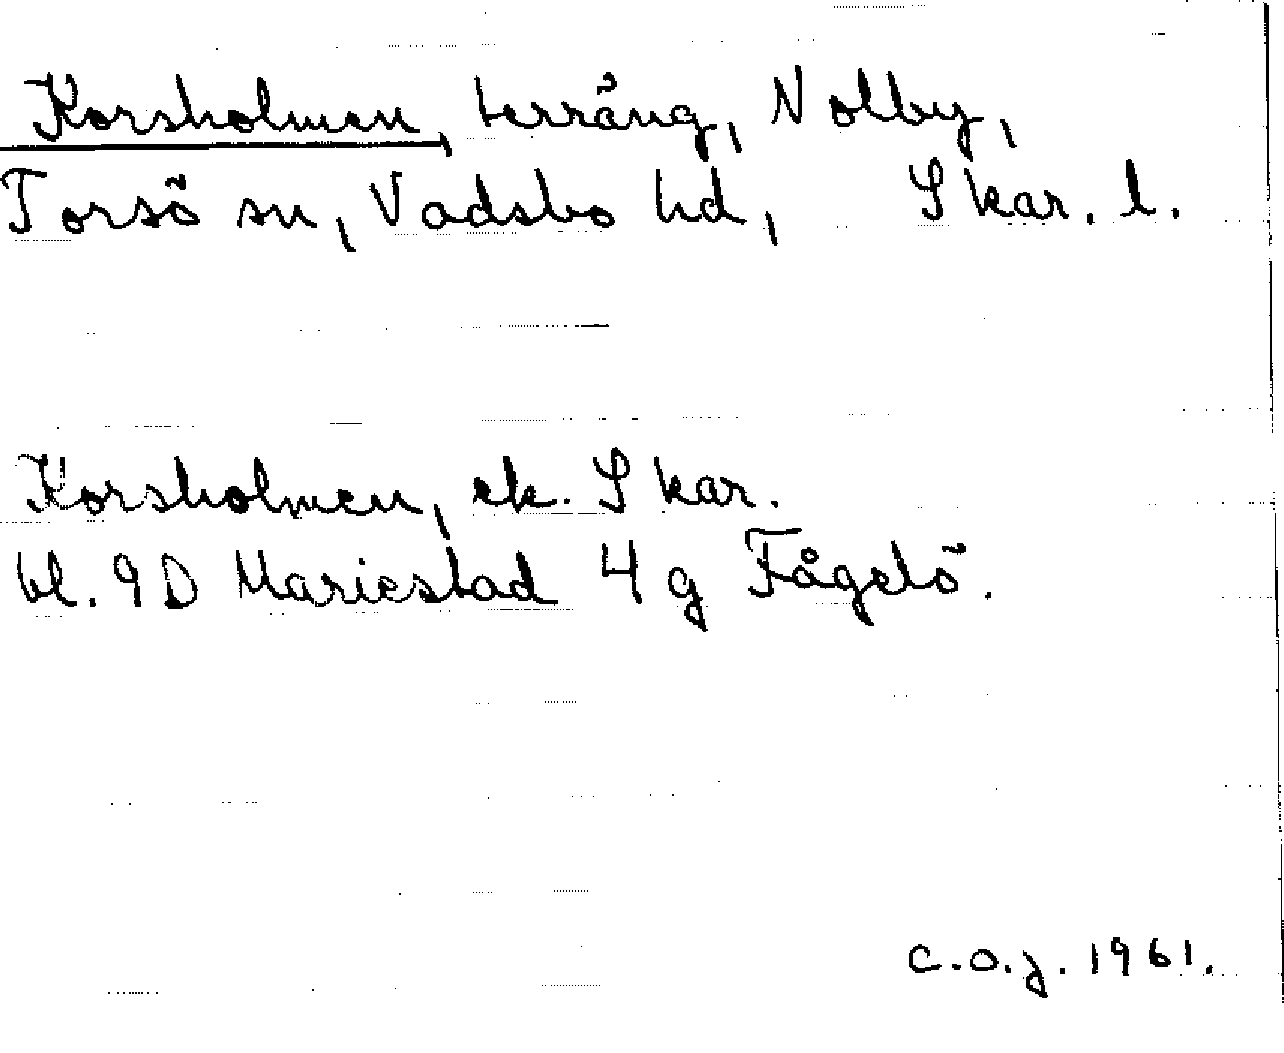 Korsholmen, terräng, Nolby,
Torsö sn, Vadsbo hd, Skar. l.
Korsholmen, ek. Skar.
bl. 9D Mariestad 4g Fågelö.
C.O.J. 1961.